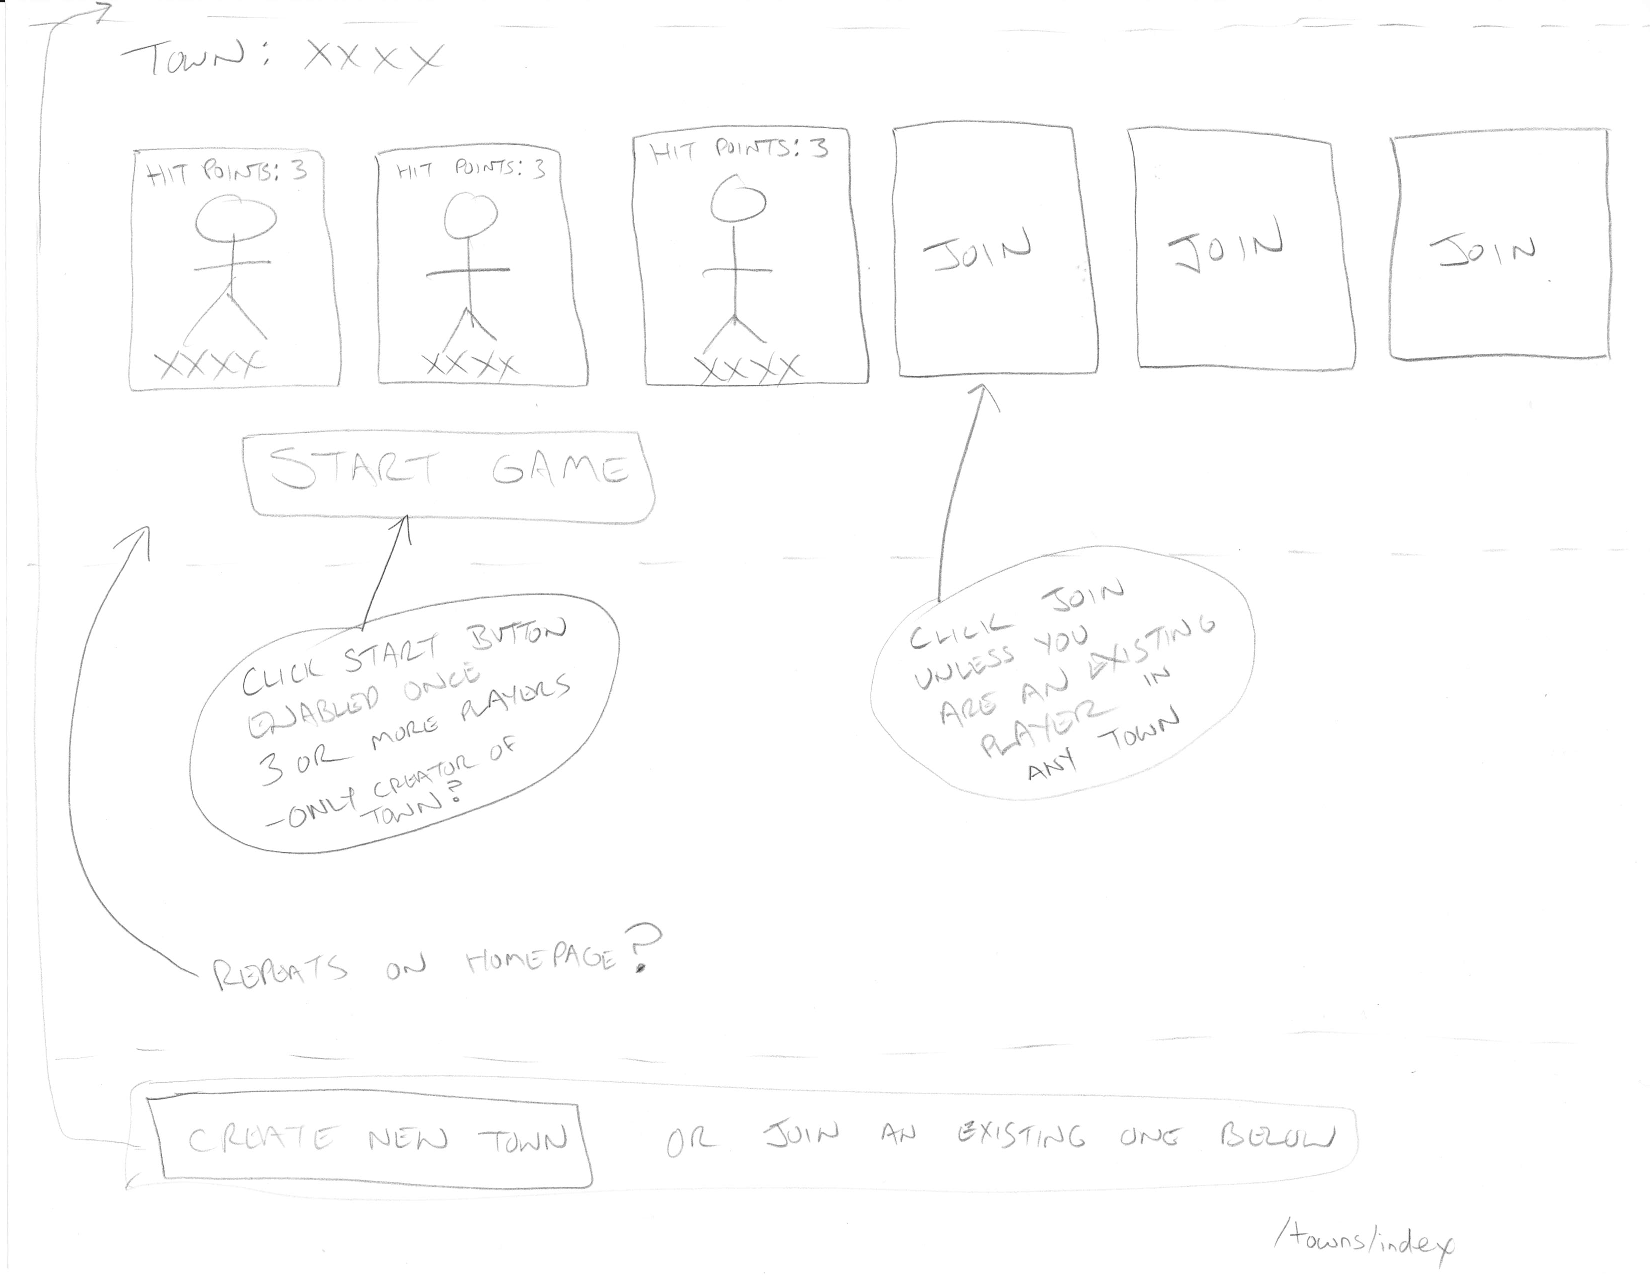 TOWN: XXXX
HIT POINTS: 3
XXXX
HIT POINTS: 3
XXXX
HIT POINTS: 3
XXXX
JOIN
JOIN
JOIN
START GAME
CLICK START BUTTON
ENABLED ONCE
3 OR MORE PLAYERS
-ONLY CREATOR OF
TOWN?
CLICK JOIN
UNLESS YOU
ARE AN EXISTING
PLAYER IN
ANY TOWN
REPEATS ON HOMEPAGE?
CREATE NEW TOWN OR JOIN AN EXISTING ONE BELOW
/towns/index